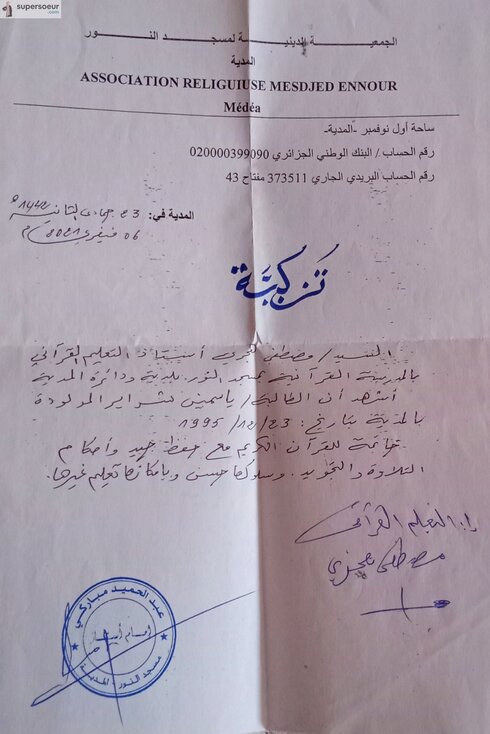 supersoeur
.com
الجمعيـــة الدينيـــة لمسجـــد النـــور
المدية
ASSOCIATION RELIGUIUSE MESDJED ENNOUR
Médéa
ساحة أول نوفمبر -المدية-
رقم الحساب / البنك الوطني الجزائري 020000399090
رقم الحساب البريدي الجاري 373511 مفتاح 43
المدية في: 23 جمادى الثانية 1442 هـ
06 فيفري 2021 م
تزكيّة
السيد / مصطفى أستاذ التعليم القرآني
بالمدرسة القرآنية بمسجد النور بلدية ودائرة المدية
أشهد أن الطالبة / ياسمين المولودة
بالمدية بتاريخ : 23/12/1995
خاتمة للقرآن الكريم مع حفظ جيد وأحكام
التلاوة والتجويد. وسلوكها حسن وبإمكانها تعليم غيرها.
التعليم القرآني
مصطفى
عبد الحميد مباركي
إمام أستاذ
مسجد النور - المدية